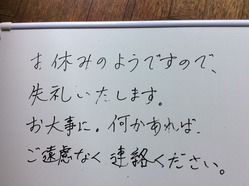 お休みのようですので、
失礼いたします。
お大事に。何かあれば、
ご遠慮なく連絡ください。